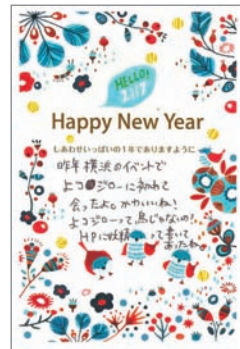 HELLO!
2017
Happy New Year
しあわせいっぱいの1年でありますように
昨年 横浜のイベントで
ヨコジローに初めて
会ったよ。かわいいね!
ヨコジローって鳥じゃないの?
HPに妖精 って書いて
あったね。